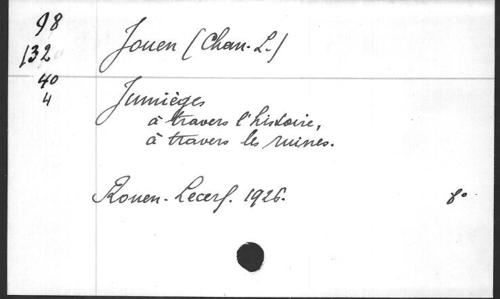 98
132
40
4
Jouen (Chan. L.)
Jumièges
à travers l'histoire,
à travers les ruines.
Rouen. Lecerf. 1926. 8°